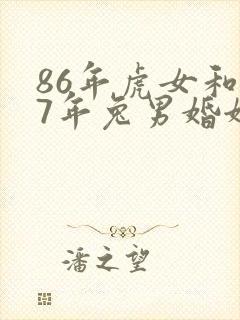 86年虎女和
7年兔男婚
潘之望